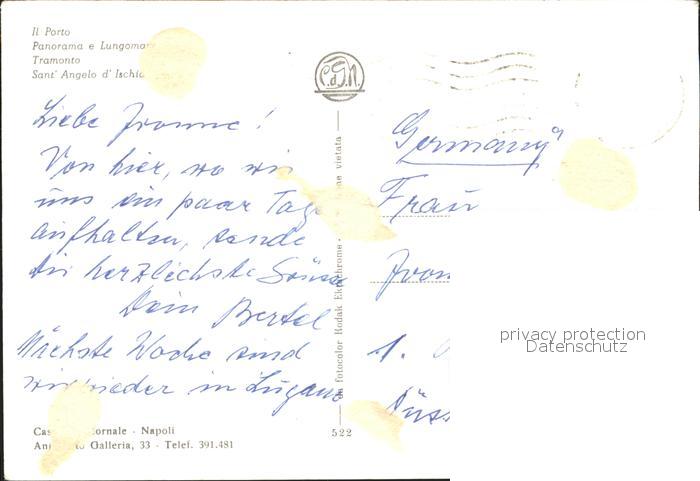 Il Porto
Panorama e Lungomar
Tramonto
Sant' Angelo d' Ischia
C.d.G.N.
Liebe Ivonne!
Von hier, wo wir
uns ein paar Tage
aufhalten, sende
Dir herzlichste Grüsse
Dein Bertel
Nächste Woche sind
wir wieder in Lugano
Cas ornale - Napoli
Galleria, 33 - Telef. 391.481
522
da fotocolor Kodak Ektachrome - ne vietata
"Germany"
Frau
Ivon
1.
Düss
privacy protection
Datenschutz